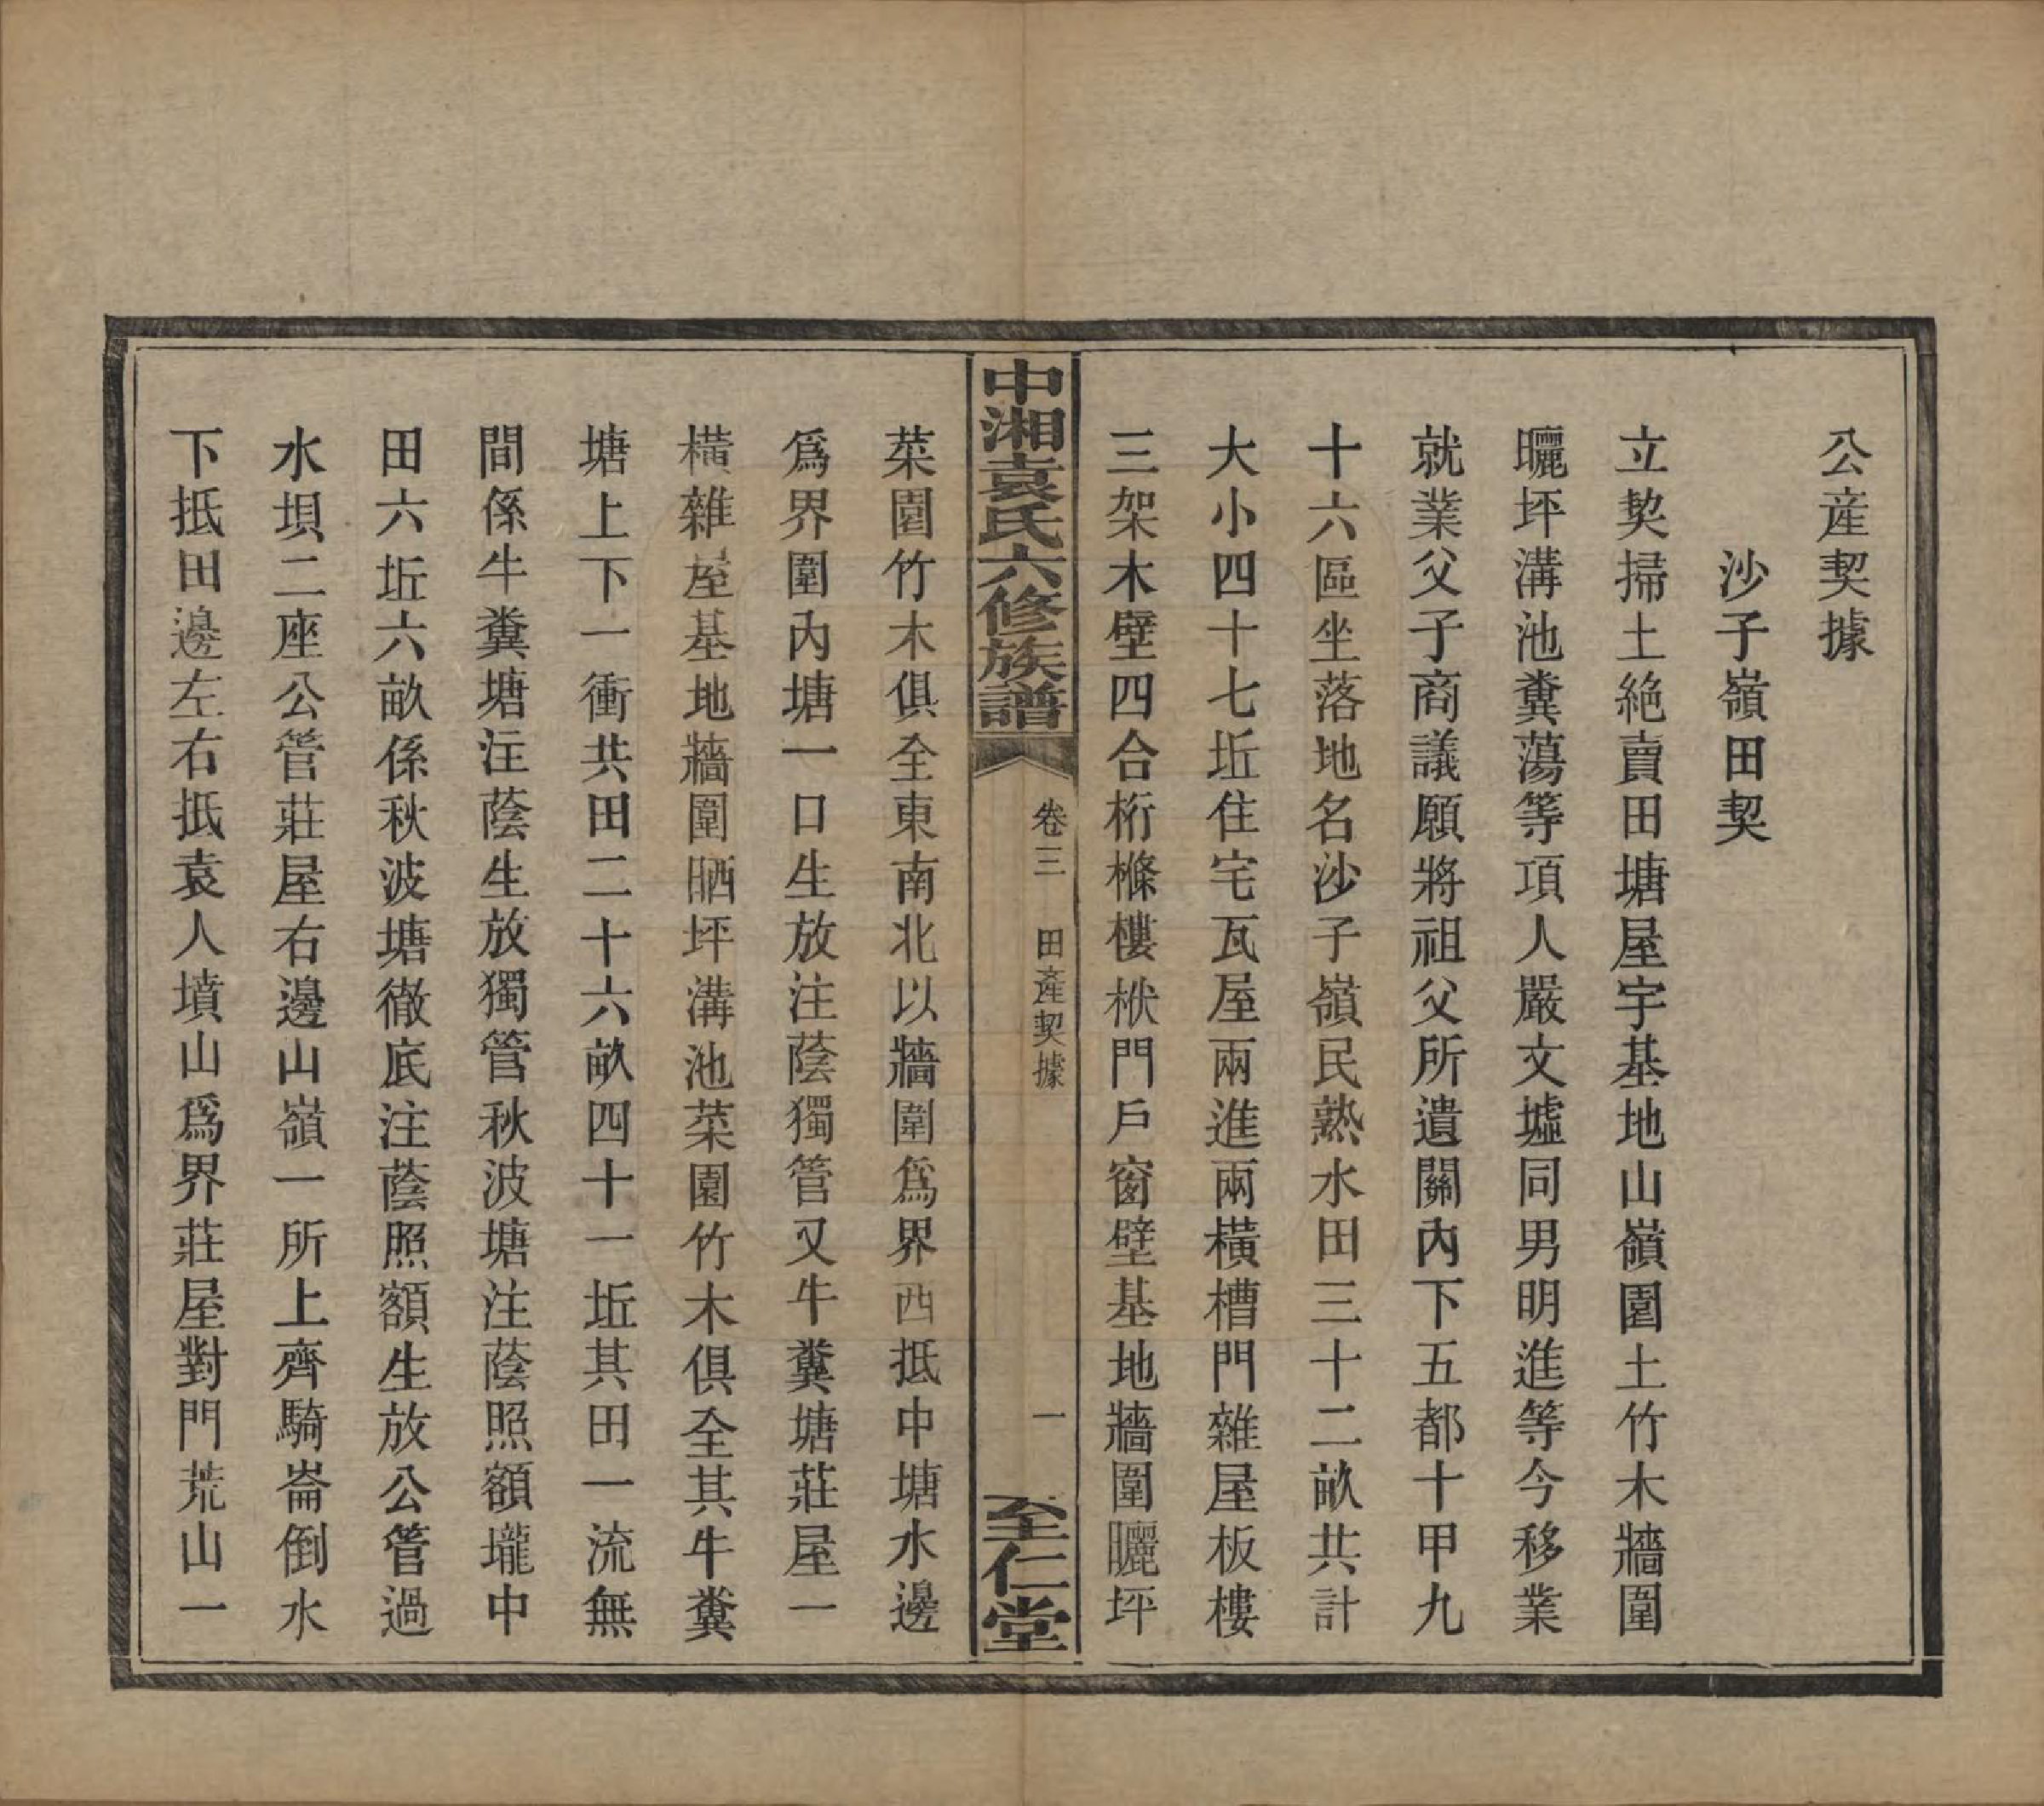 公產契據
沙子嶺田契
立契掃土絕賣田塘屋宇基地山嶺園土竹木牆圍
曬坪溝池糞蕩等項人嚴文墟同男明進等今移業
就業父子商議願將祖父所遺關內下五都十甲九
十六區坐落地名沙子嶺民熟水田三十二畝共計
大小四十七坵住宅瓦屋兩進兩橫槽門雜屋板樓
三架木壁四合桁條樓栿門戶窗壁基地牆圍曬坪
中湘袁氏六修族譜
卷三
田產契據
一
至仁堂
菜園竹木俱全東南北以牆圍爲界西抵中塘水邊
爲界圍內塘一口生放注蔭獨管又牛糞塘莊屋一
橫雜屋基地牆圍晒坪溝池菜園竹木俱全其牛糞
塘上下一衝共田二十六畝四十一坵其田一流無
間係牛糞塘注蔭生放獨管秋波塘注蔭照額壠中
田六坵六畝係秋波塘徹底注蔭照額生放公管過
水垻二座公管莊屋右邊山嶺一所上齊騎崙倒水
下抵田邊左右抵袁人墳山爲界莊屋對門荒山一